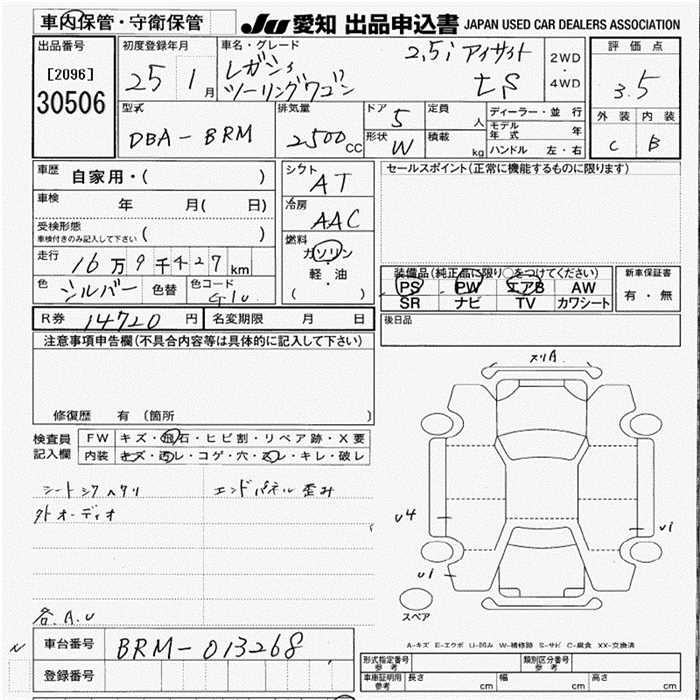 車内保管・守衛保管
JU 愛知 出品申込書 JAPAN USED CAR DEALERS ASSOCIATION
出品番号
[2096]
30506
初度登録年月
25 1月
車名・グレード
レガシィ
ツーリングワゴン
2.5i アイサイト
2WD
・
4WD
評価点
3.5
外装 内装
C B
型式
DBA-BRM
排気量
2500cc
ドア 5
形状 W
定員 人
積載 kg
ディーラー・並行
モデル年式 年
ハンドル 左・右
車歴 自家用・( )
車検 年 月( 日)
受検形態
車検付きのみ記入して下さい ( )
走行 16万9千427km
色 シルバー 色替 色コード G1U
シフト
AT
冷房
AAC
燃料
ガソリン
軽・油
( )
セールスポイント(正常に機能するものに限ります)
装備品(純正品に限り○をつけてください)
PS PW エアB AW
SR ナビ TV カワシート
新車保証書
有・無
R券 14720円 名変期限 月 日
後日品
注意事項申告欄(不具合内容等は具体的に記入して下さい)
修復歴 有(箇所 )
検査員
記入欄
FW キズ・飛石・ヒビ割・リペア跡・X要
内装 キズ・汚レ・コゲ・穴・スレ・キレ・破レ
エンドパネル歪み
外オーディオ
各A.U
スリA
U4
U1
U1
スペア
A-キズ E-エクボ U-凹み W-補修跡 S-サビ C-腐食 XX-交換済
車台番号 BRM-013268
登録番号
形式指定番号
参考
類別区分番号
参考
車庫証明用
参考
長さ cm 幅 cm 高さ cm